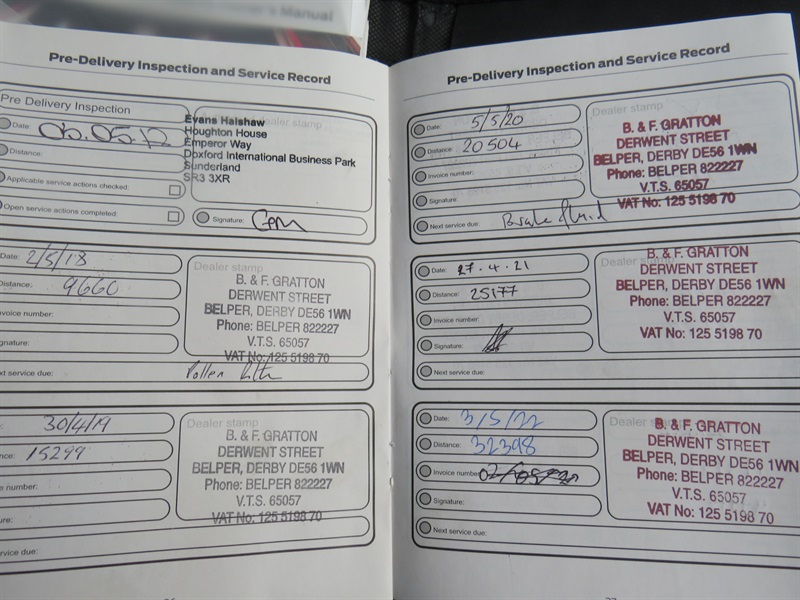 Owner's Manual
Pre-Delivery Inspection and Service Record
Pre Delivery Inspection
Date:
Distance:
Applicable service actions checked:
Open service actions completed:
Dealer stamp
Evans Halshaw
Houghton House
Emperor Way
Doxford International Business Park
Sunderland
SR3 3XR
Signature:
Date: 2/5/18
Distance: 9660
nvoice number:
gnature:
Dealer stamp
B. & F. GRATTON
DERWENT STREET
BELPER, DERBY DE56 1WN
Phone: BELPER 822227
V.T.S. 65057
VAT No: 125 5198 70
xt service due: Pollen
30/4/19
nce: 15299
e number:
ure:
Dealer stamp
B. & F. GRATTON
DERWENT STREET
BELPER, DERBY DE56 1WN
Phone: BELPER 822227
V.T.S. 65057
VAT No: 125 5198 70
rvice due:
Pre-Delivery Inspection and Service Record
Date: 5/5/20
Distance: 20504
Invoice number:
Signature:
Dealer stamp
B. & F. GRATTON
DERWENT STREET
BELPER, DERBY DE56 1WN
Phone: BELPER 822227
V.T.S. 65057
VAT No: 125 5198 70
Next service due: Brake fluid
Date: 27.4.21
Distance: 25177
Invoice number:
Signature:
B. & F. GRATTON
DERWENT STREET
BELPER, DERBY DE56 1WN
Phone: BELPER 822227
V.T.S. 65057
VAT No: 125 5198 70
Next service due:
Date: 3/5/22
Distance: 32398
Invoice number:
Signature:
Dealer
B. & F. GRATTON
DERWENT STREET
BELPER, DERBY DE56 1WN
Phone: BELPER 822227
V.T.S. 65057
VAT No: 125 5198 70
Next service due: